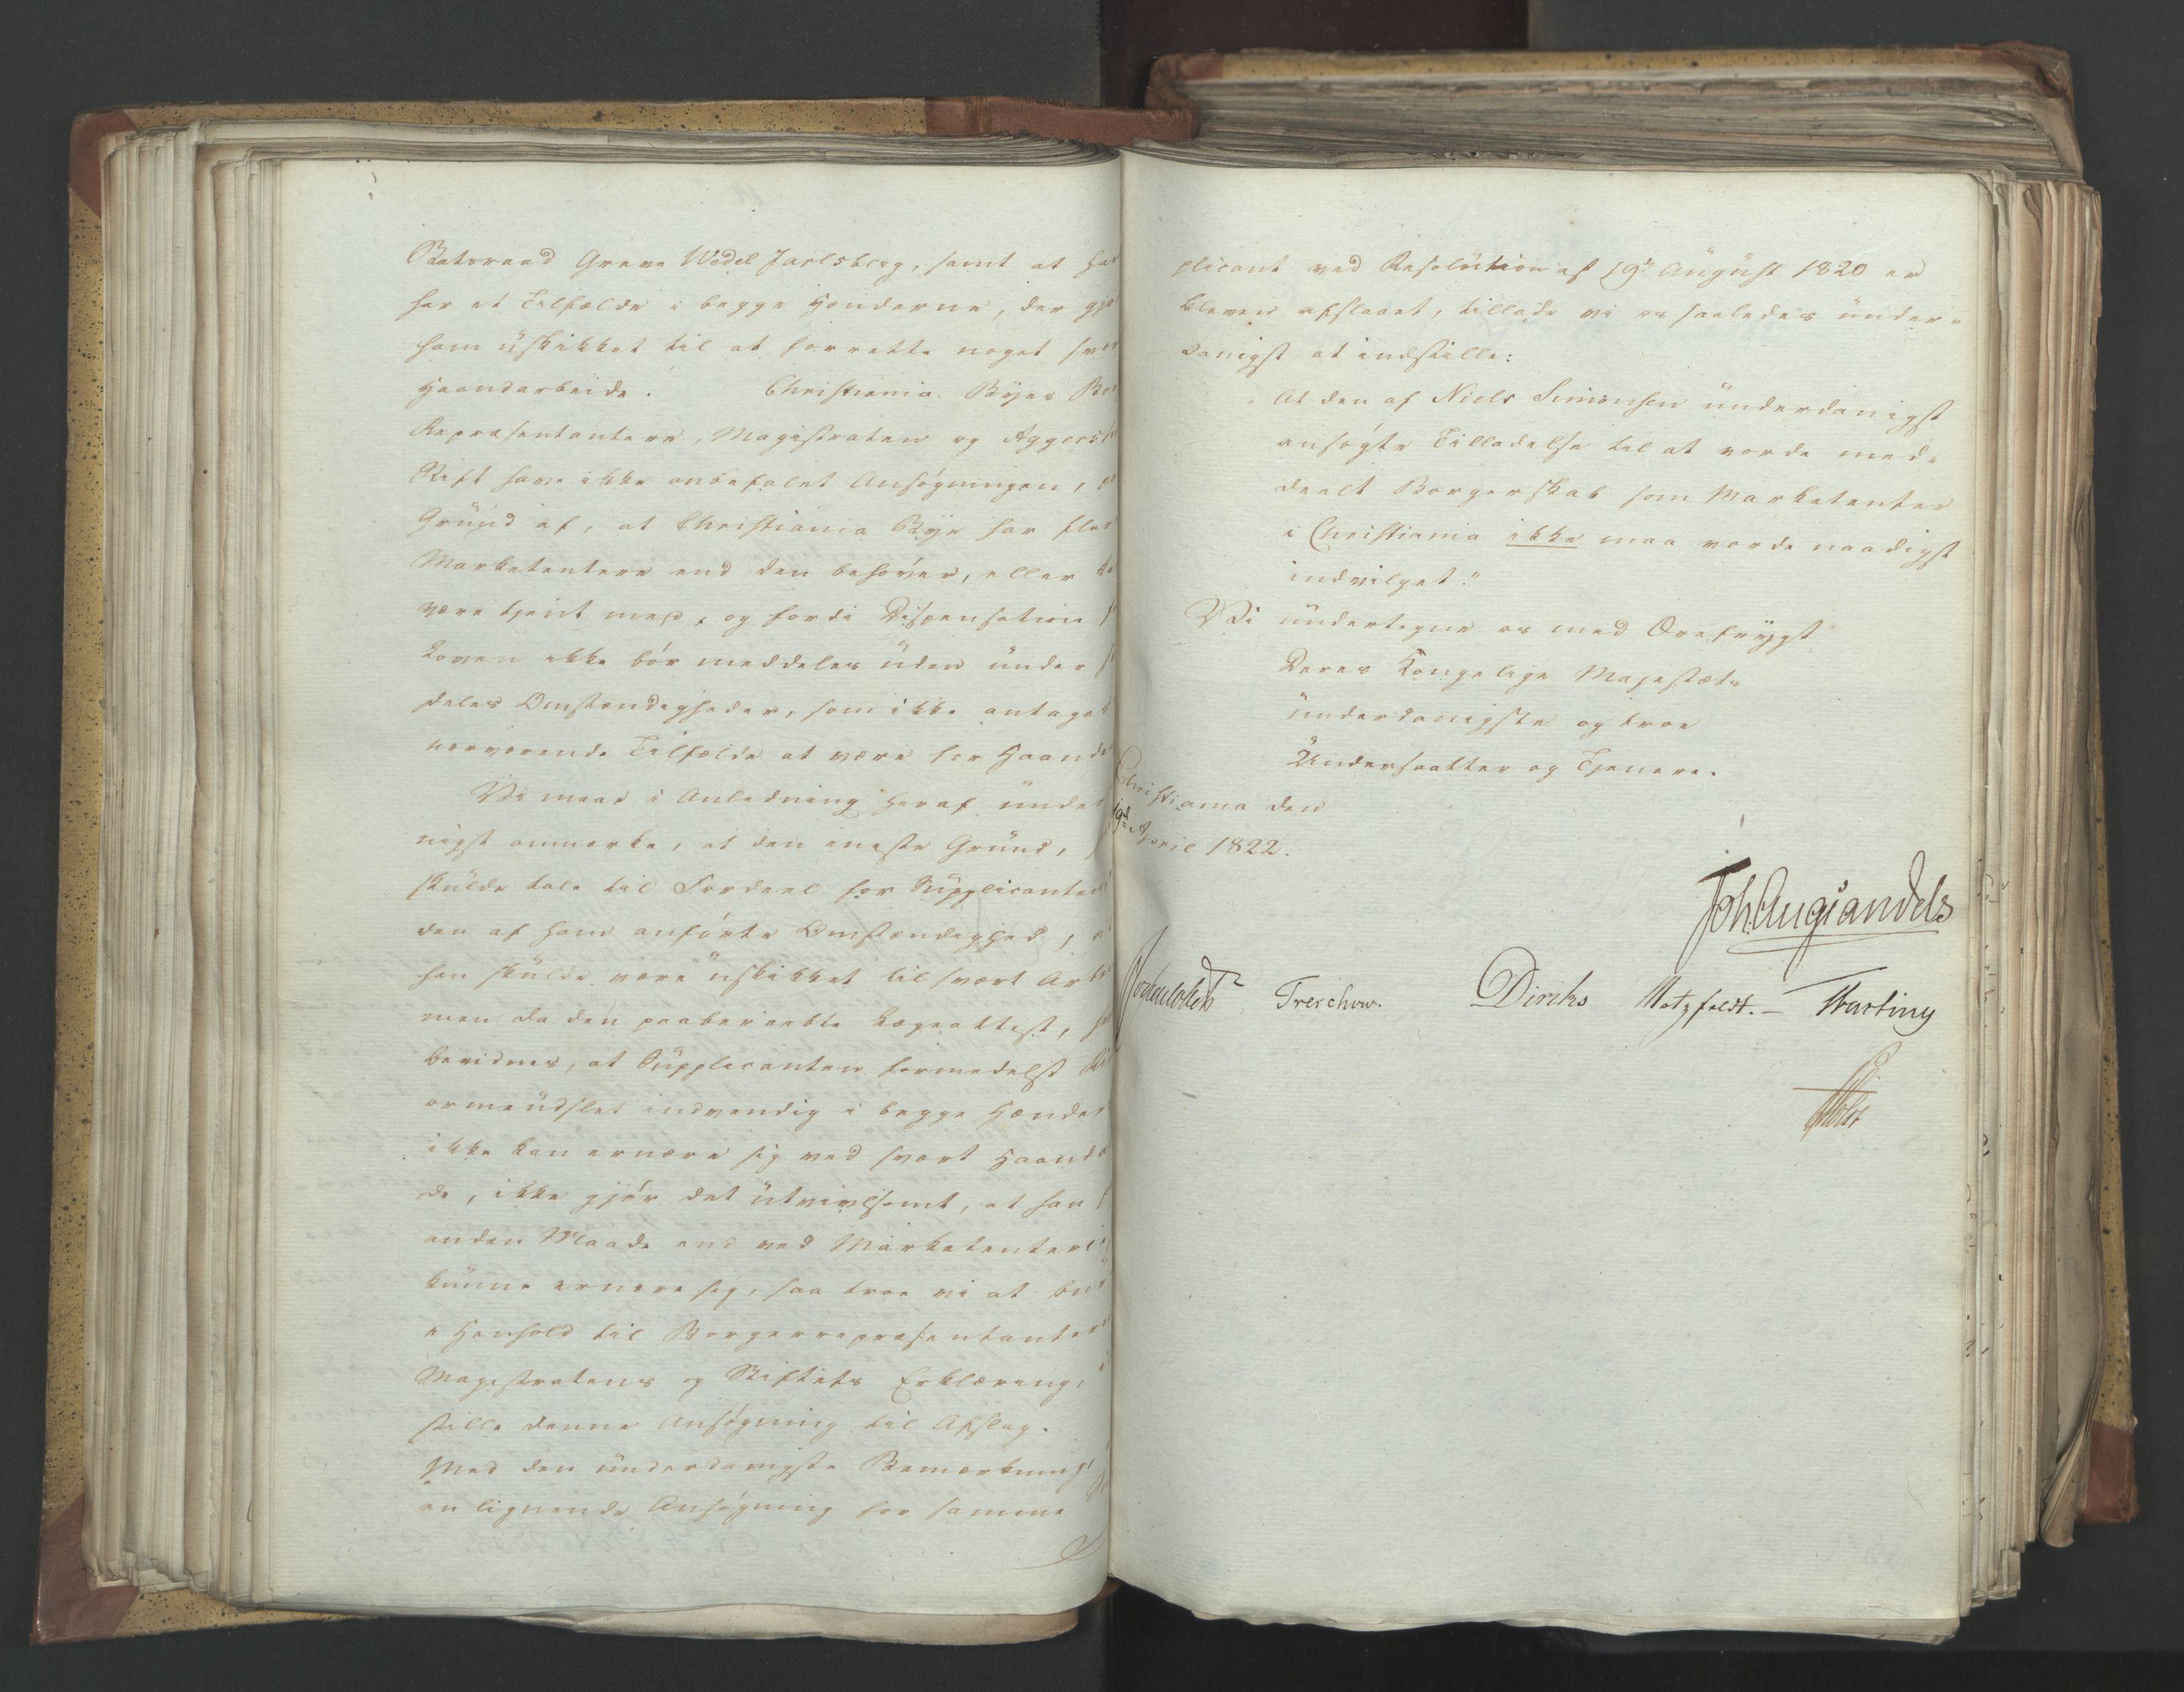 Statsraad Greve Wedel Jarlsberg, samt at han
har et Tilfælde i begge Hænderne, der gjø
ham uskikket til at forrette noget svært
Haandarbeide. Christiania Byes Bor
Repræsentantere, Magistraten og Aggersh
Stift have ikke anbefalet Ansøgningen, 
Grund af, at Christiania Bye har fler
Marketentere end den behøver, eller ka
være tjent med, og fordi Dispensation f
Loven ikke bør meddeles uden under s
deles Omstændigheder, som ikke antages
nærværende Tilfælde at være for Haande
Vi maae i Anledning heraf under
nigst anmærke, at den eneste Grund,
skulde tale til Fordeel for Supplicanten
den af ham anførte Omstændighed, a
han skulde være uskikket til svært Arbe
men da den paaberaabte Lægeattest, h
bevidnes, at Supplicanten formedelst
ormeudslet indvendig i begge Hænder
ikke kan ernære sig ved svært Haanda
de, ikke gjør det utvivlsomt, at han
anden Maade end ved Marketenteri
kunne ernære sig, saa troe vi at bur
i Henhold til Borgerrepræsentanter
Magistratens og Stiftets Erklæring,
stille denne Ansøgning til Afslag.
Med den underdanigste Bemærkning
en lignende Ansøgning for samme
plicant ved Resolution af 19de August 1820 er
bleven afslaaet, tillade vi os saaledes under-
danigst at indstille:
At den af Niels Simonsen underdanigst
ansøgte Tilladelse til at vorde med-
deelt Borgerskab som Marketenter
i Christiania ikke maa vorde naadigst
indvilget."
Vi undertegne os med Ærefrygt
Deres Kongelige Majestæts
underdanigste og troe
Undersaatter og Tjenere.
Christiania den
19de April 1822.
Joh. Aug. Sandels
Sommerhielm Treschow. Diriks Motzfeldt. - Fasting
Holst